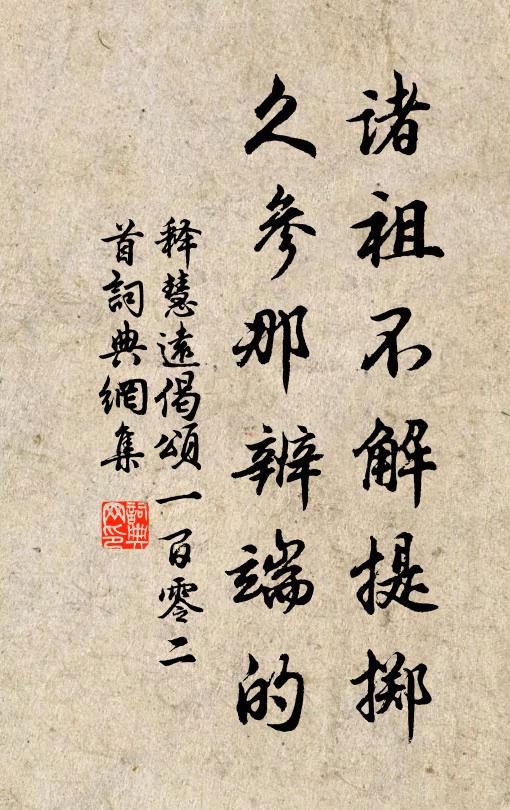 诸祖不解提掷
久参那辨端的
释慧遠偈頌一百零二
首詞典網集
詞典
网印